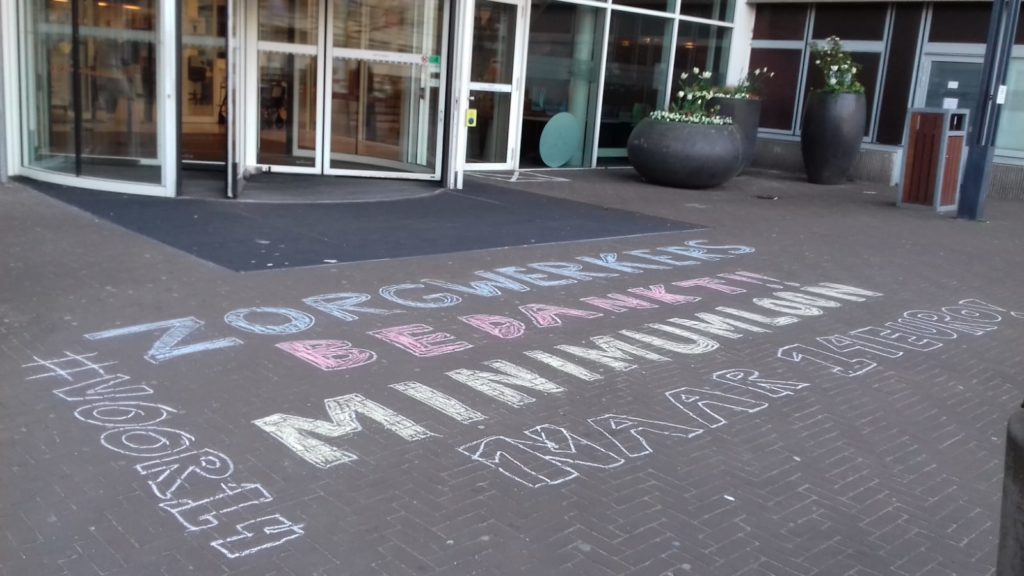 ZORGWERKERS
BEDANKT!!
MINIMUMLOON
NAAR 14 EURO!
#VOOR14